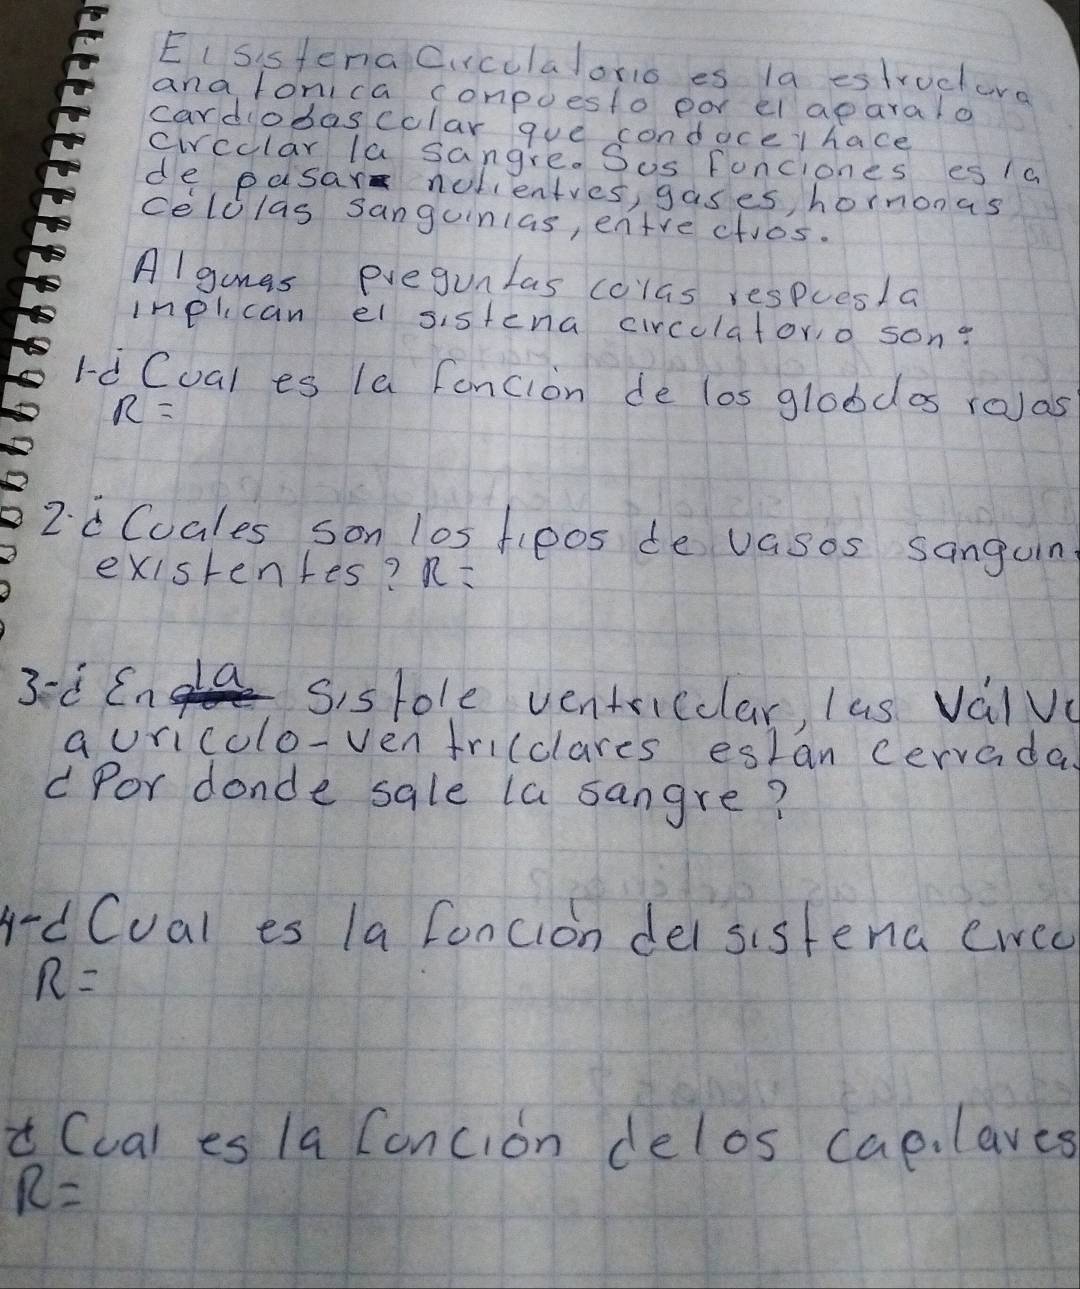 El sistema Circulatorio es la estructura
anatonica conpuesto por el aparato
cardiobascular que conduce y hace
circular la sangre. Sus funciones es la
de pasar nutrientres, gases, hormonas
células sanguinias, entre otros.
Algunas preguntas cuya respuesta
inplican el sistena circulatorio son:
1-¿Cual es la función de los globulos rojos
R=
2-¿Cuales son los tipos de vasos sanguin
existentes? R=
3-¿En la sistole ventricular, las válvu
auriculo-ventriculares están cerradas
¿Por donde sale la sangre?
4-¿Cual es la función del sistema circu
R=
¿Cual es la función de los capilares
R=